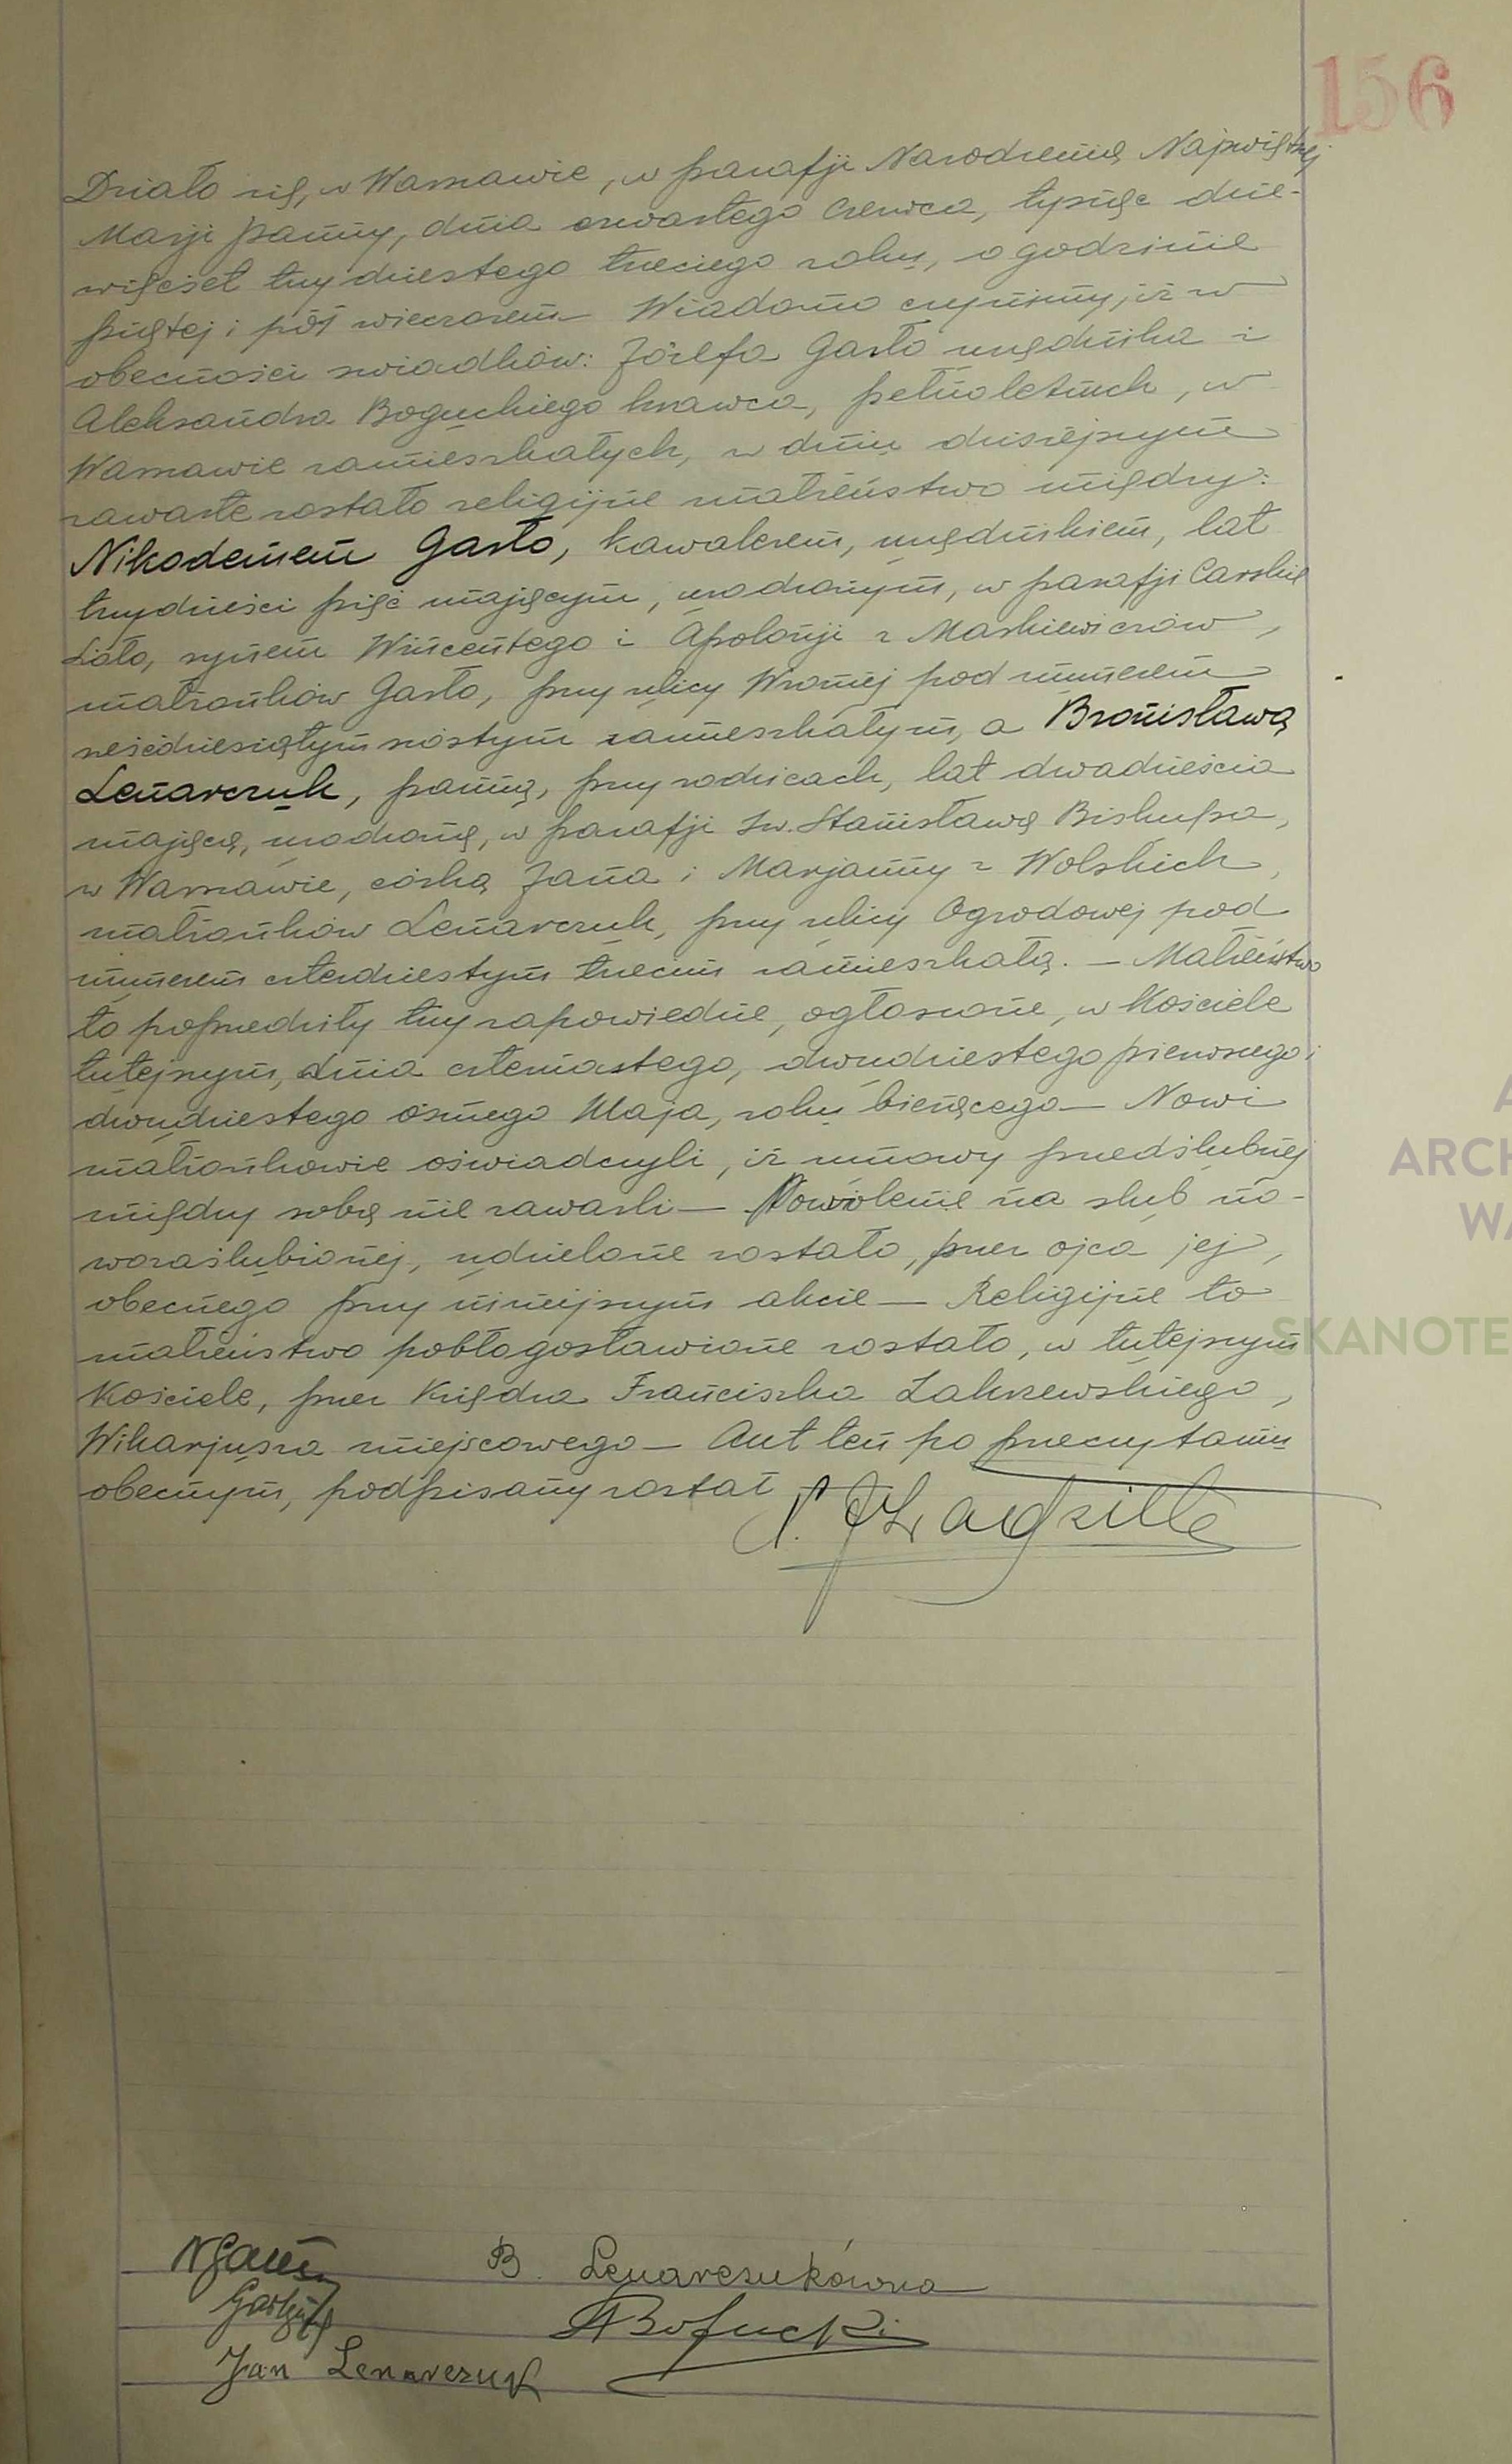 156
Działo się, w Warszawie, w parafji Narodzenia Najświętszej
Marji Panny, dnia czwartego Czerwca, tysiąc dzie-
więćset trzydziestego trzeciego roku, o godzinie
piątej i pół wieczorem — Wiadomo czynimy, iż w
obecności świadków: Józefa Gasło urzędnika i
Aleksandra Boguckiego krawca, pełnoletnich, w
Warszawie zamieszkałych, w dniu dzisiejszym
zawarte zostało religijne małżeństwo między:
Nikodemem Gasło, kawalerem, urzędnikiem, lat
trzydzieści pięć mającym, urodzonym, w parafji Carskie
Sioło, synem Wincentego i Apolonji z Maskiewiczów,
małżonków Gasło, przy ulicy Wroniej pod numerem
sześćdziesiątym szóstym zamieszkałym, a Bronisławą
Lenarczuk, panną, przy rodzicach, lat dwadzieścia
mającą, urodzoną, w parafji św. Stanisława Biskupa,
w Warszawie, córką Jana i Marjanny z Wolskich,
małżonków Lenarczuk, przy ulicy Ogrodowej pod
numerem czterdziestym trzecim zamieszkałą. — Małżeństwo
to poprzedziły trzy zapowiedzie, ogłoszone, w Kościele
tutejszym, dnia czternastego, dwudziestego pierwszego i
dwudziestego ósmego Maja, roku bieżącego — Nowi
małżonkowie oświadczyli, iż umowy przedślubnej
między sobą nie zawarli — Pozwolenie na ślub no-
wozaślubionej, udzielone zostało, przez ojca jej,
obecnego przy niniejszym akcie — Religijne to
małżeństwo pobłogosławione zostało, w tutejszym
Kościele, przez Księdza Franciszka Zakrzewskiego,
Wikarjusza miejscowego — Akt ten po przeczytaniu
obecnym, podpisany został
B. Lenarczukówna
ABogucki
Jan Lenarczuk
ARCH
WA
SKANOTE